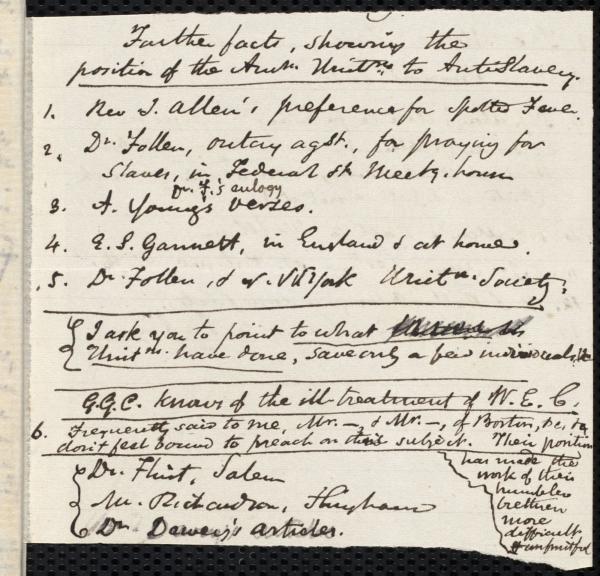 Farther facts, showing the
position of the Amn. Unitns to AntiSlavery.
1. Rev J. Allen's preference for Spotted Fever.
2. Dr. Follen, outcry agst., for praying for
Slaves, in Federal St. Meetg. house
Dr. F.'s eulogy
3. A. Young's verses.
4. E. S. Gannett, in England & at home.
5. Dr. Follen, & N. York Unitn. Society.
I ask you to point to what
Unitns. have done, save only a few individuals, &c
G.G.C. knows of the ill-treatment of W. E. C.
6. Frequently said to me, Mr. —, & Mr. —, of Boston, &c, &c,
don't feel bound to preach on this subject. Their position
has made the
work of their
humbler
brethren
more
difficult
& unfruitful
Dr. Flint, Salem
Mr. Richardson, Hingham
Dr. Dewey's articles.